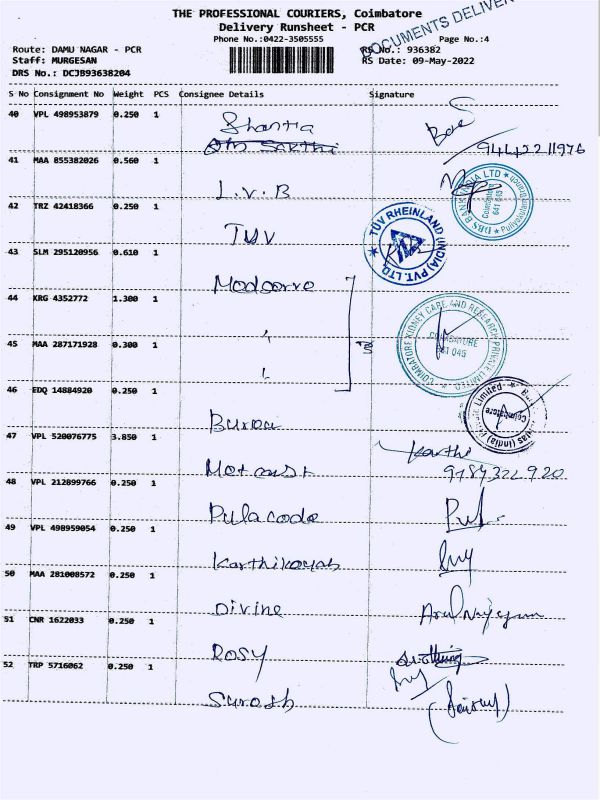 THE PROFESSIONAL COURIERS, Coimbatore
Delivery Runsheet - PCR
DOCUMENTS DELIVER
Phone No.:0422-3505555
Page No.:4
Route: DAMU NAGAR - PCR
RS No.: 936382
Staff: MURGESAN
RS Date: 09-May-2022
DRS No.: DCJB93638204
S No Consignment No Weight PCS Consignee Details Signature
40 VPL 498953879 0.250 1
Shantia
9442211976
41 MAA 855382026 0.560 1
L.V.B
DBS BANK INDIA LTD
Coimbatore
641 045
42 TRZ 42418366 0.250 1
TUV
TÜV RHEINLAND (INDIA) PVT. LTD.
43 SLM 295120956 0.610 1
44 KRG 4352772 1.300 1
COIMBATORE KIDNEY CARE AND RESEARCH PRIVATE LIMITED
COIMBATORE
641 045
45 MAA 287171928 0.300 1
46 EDQ 14884920 0.250 1
Limited
Coimbatore
47 VPL 520076775 3.850 1
Karthi
9789322920
48 VPL 212899766 0.250 1
Pulacode
49 VPL 498959054 0.250 1
Karthikayah
50 MAA 281008572 0.250 1
Divine
51 CNR 1622033 0.250 1
Rosy
52 TRP 5716062 0.250 1
Surosh